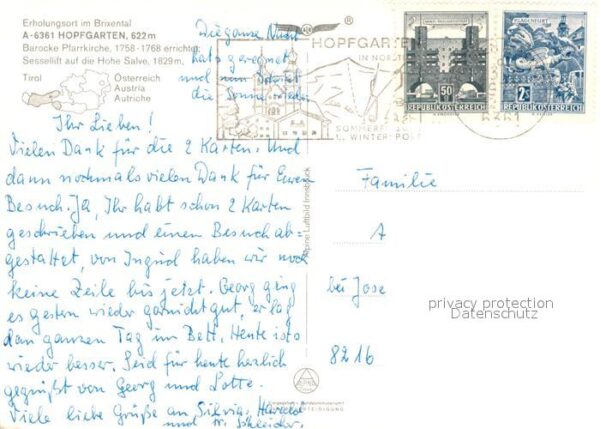 Erholungsort im Brixental
A-6361 HOPFGARTEN, 622 m
Barocke Pfarrkirche, 1758-1768 errichtet,
Sessellift auf die Hohe Salve, 1829 m,
Tirol
Österreich
Austria
Autriche
Die ganze Nacht
hat's geregnet
und nun
die Sonne wieder
HOPFGARTEN
IN NORDTIROL
SOMMERFRISCHE
U. WINTERSPORT
6361
50
REPUBLIK ÖSTERREICH
KLAGENFURT
2 S
REPUBLIK ÖSTERREICH
Ihr Lieben!
Vielen Dank für die 2 Karten. Und
dann nochmals vielen Dank für Euren
Besuch. Ja, Ihr habt schon 2 Karten
geschrieben und einen Besuch ab-
gestattet, von Ingrid haben wir noch
keine Zeile bis jetzt. Georg ging
es gestern wieder garnicht gut, er lag
den ganzen Tag im Bett. Heute ists
wieder besser. Seid für heute herzlich
gegrüßt von Georg und Lotte.
Viele liebe Grüße an Silvia, Harald
und
Alpine Luftbild Innsbruck
Familie
A
bei Jose
8216
privacy protection
Datenschutz